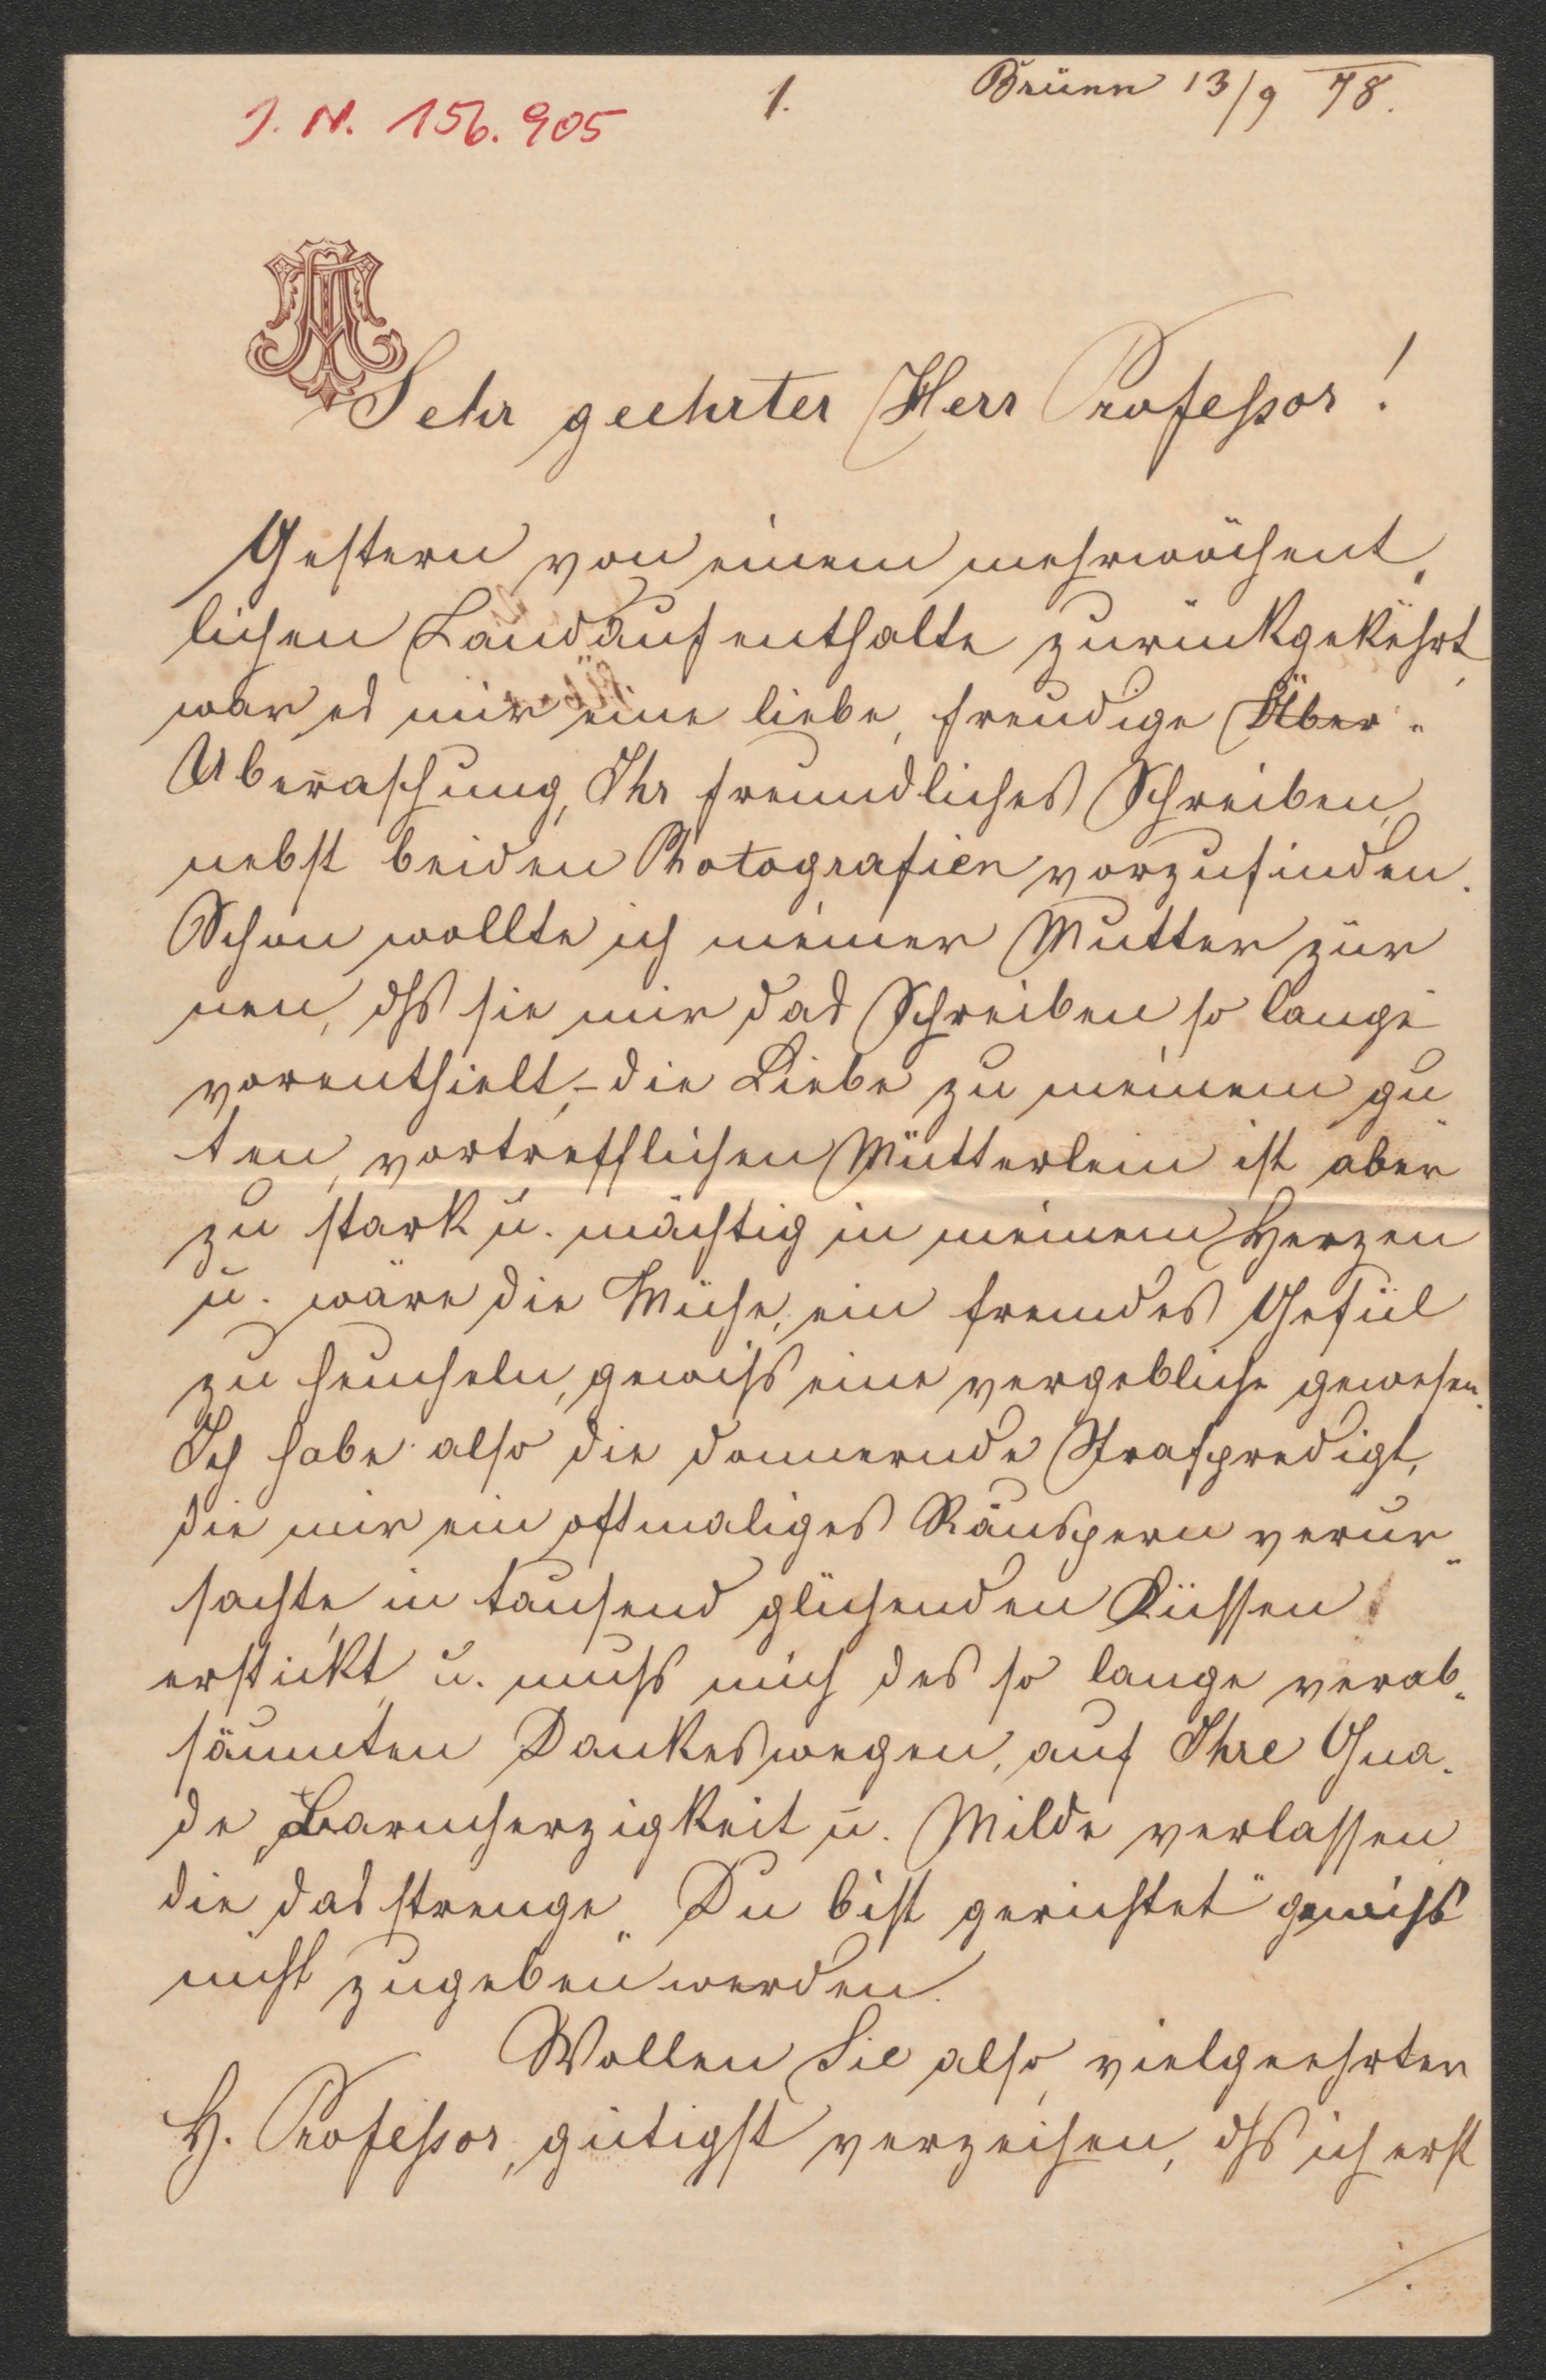 J. N. 156.905
1.
Brünn 13/9 78.
Sehr geehrter Herr Professor!
Gestern von einem mehrwöchent„
lichen Landaufenthalte zurückgekehrt,
war es mir eine liebe, freudige Über„
Uberraschung, Ihr freundliches Schreiben,
nebst beiden Photografien vorzufinden.
Schon wollte ich meiner Mutter zür
nen, dſs sie mir das Schreiben so lange
vorenthielt, – die Liebe zu meinem gu„
ten, vortrefflichen Mütterlein ist aber
zu stark u. mächtig in meinem Herzen
u. wäre die Mühe, ein fremdes Gefül
zu heucheln, gewiſs eine vergebliche gewesen.
Ich habe also die donnernde Strafpredigt,
die mir ein oftmaliges Räuspern verur„
sachte, in tausend glühenden Küssen
erstickt, u. muſs mich des so lange verab„
säumten Dankes wegen, auf Ihre Gna„
de, Barmherzigkeit u. Milde verlassen,
die das strenge „Du bist gerichtet“ gewiſs
nicht zugeben werden.
Wollen Sie also, vielgeehrter
H. Professor, gütigst verzeihen, dſs ich erst
./.